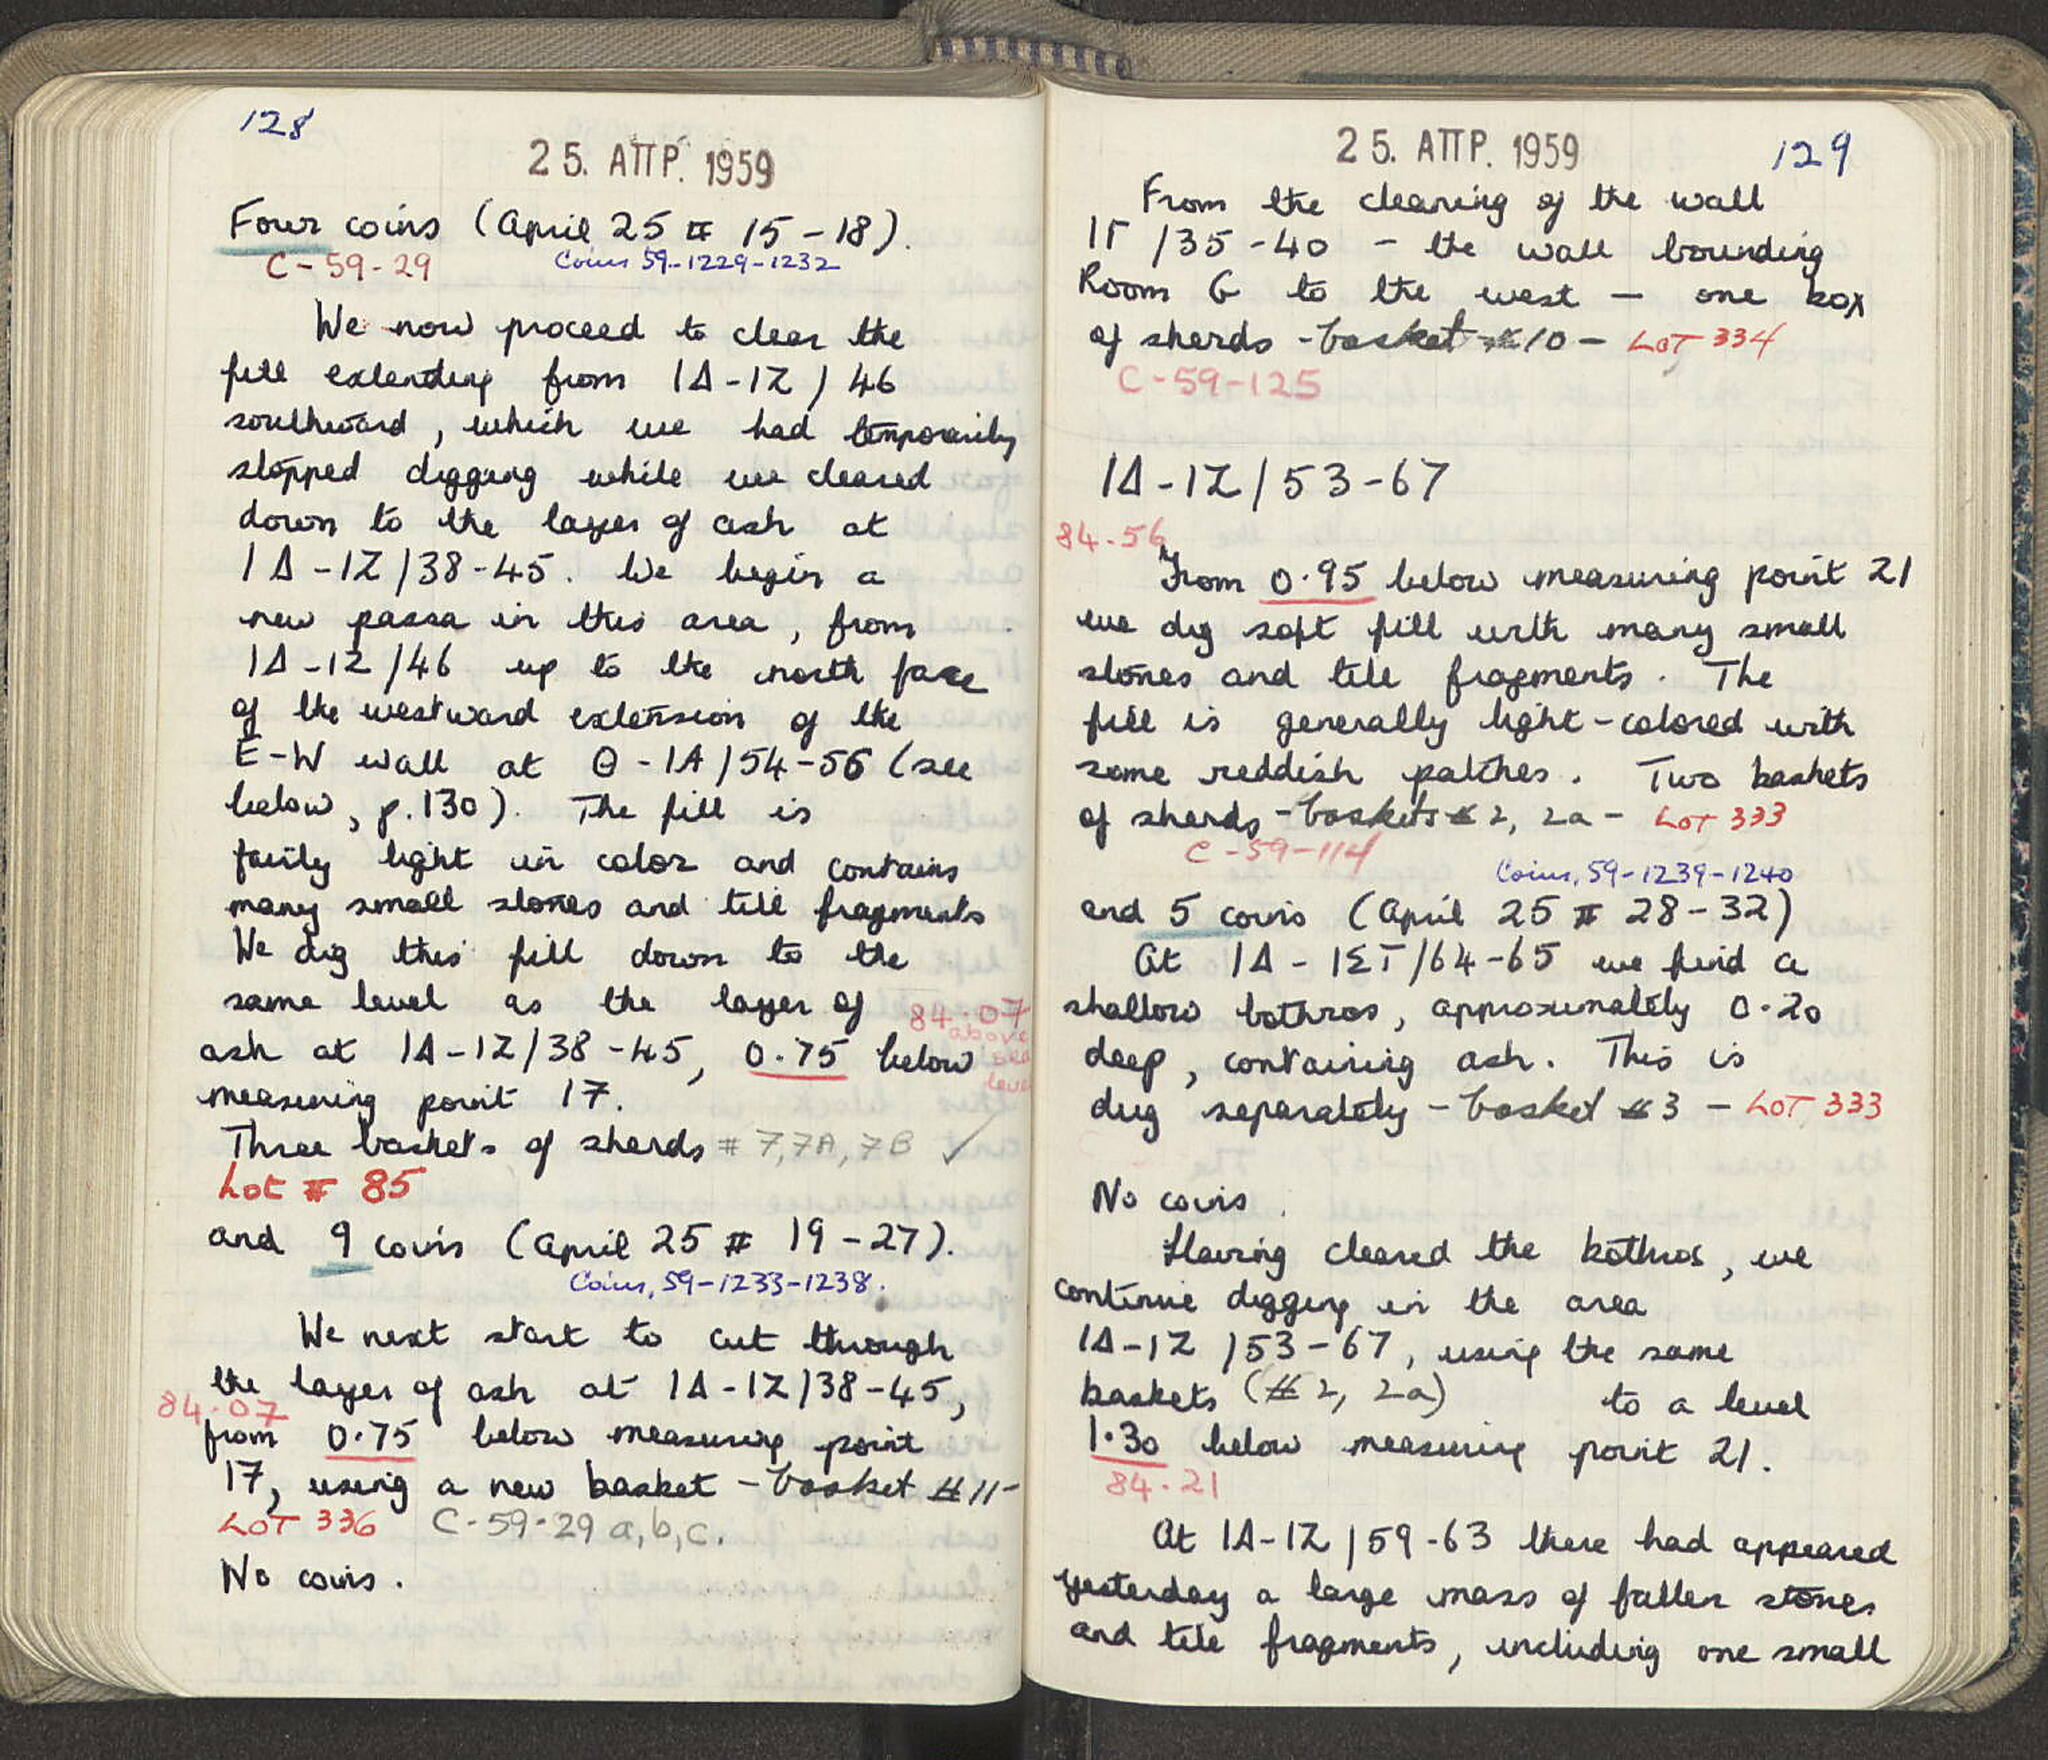 128
25. ΑΠΡ. 1959
Four coins (April 25 # 15-18).
C-59-29 Coins 59-1229-1232
We now proceed to clear the
fill extending from ΙΔ-ΙΖ/46
southward, which we had temporarily
stopped digging while we cleared
down to the layer of ash at
ΙΔ-ΙΖ/38-45. We begin a
new passa in this area, from
ΙΔ-ΙΖ/46 up to the north face
of the westward extension of the
E-W wall at Θ-ΙΔ/54-56 (see
below, p.130). The fill is
fairly light in color and contains
many small stones and tile fragments
We dig this fill down to the
same level as the layer of 84.07
above
ash at ΙΔ-ΙΖ/38-45, 0.75 below sea
level
measuring point 17.
Three baskets of sherds # 7, 7A, 7B ✓
Lot # 85
and 9 coins (April 25 # 19-27).
Coins, 59-1233-1238.
We next start to cut through
the layer of ash at ΙΔ-ΙΖ/38-45,
84.07
from 0.75 below measuring point
17, using a new basket - basket #11-
LOT 336 C-59-29 a, b, c.
No coins.
25. ΑΠΡ. 1959
129
From the cleaning of the wall
ΙΓ/35-40 - the wall bounding
Room G to the west - one box
of sherds - basket #10 - LOT 334
C-59-125
ΙΔ-ΙΖ/53-67
84.56
From 0.95 below measuring point 21
we dig soft fill with many small
stones and tile fragments. The
fill is generally light-colored with
some reddish patches. Two baskets
of sherds - baskets # 2, 2a - LOT 333
C-59-114
Coins, 59-1239-1240
and 5 coins (April 25 # 28-32)
At ΙΔ-ΙΣΤ/64-65 we find a
shallow bothros, approximately 0.20
deep, containing ash. This is
dug separately - basket #3 - LOT 333
No coins.
Having cleared the bothros, we
continue digging in the area
ΙΔ-ΙΖ/53-67, using the same
baskets (#2, 2a) to a level
1.30 below measuring point 21.
84.21
At ΙΔ-ΙΖ/59-63 there had appeared
yesterday a large mass of fallen stones
and tile fragments, including one small